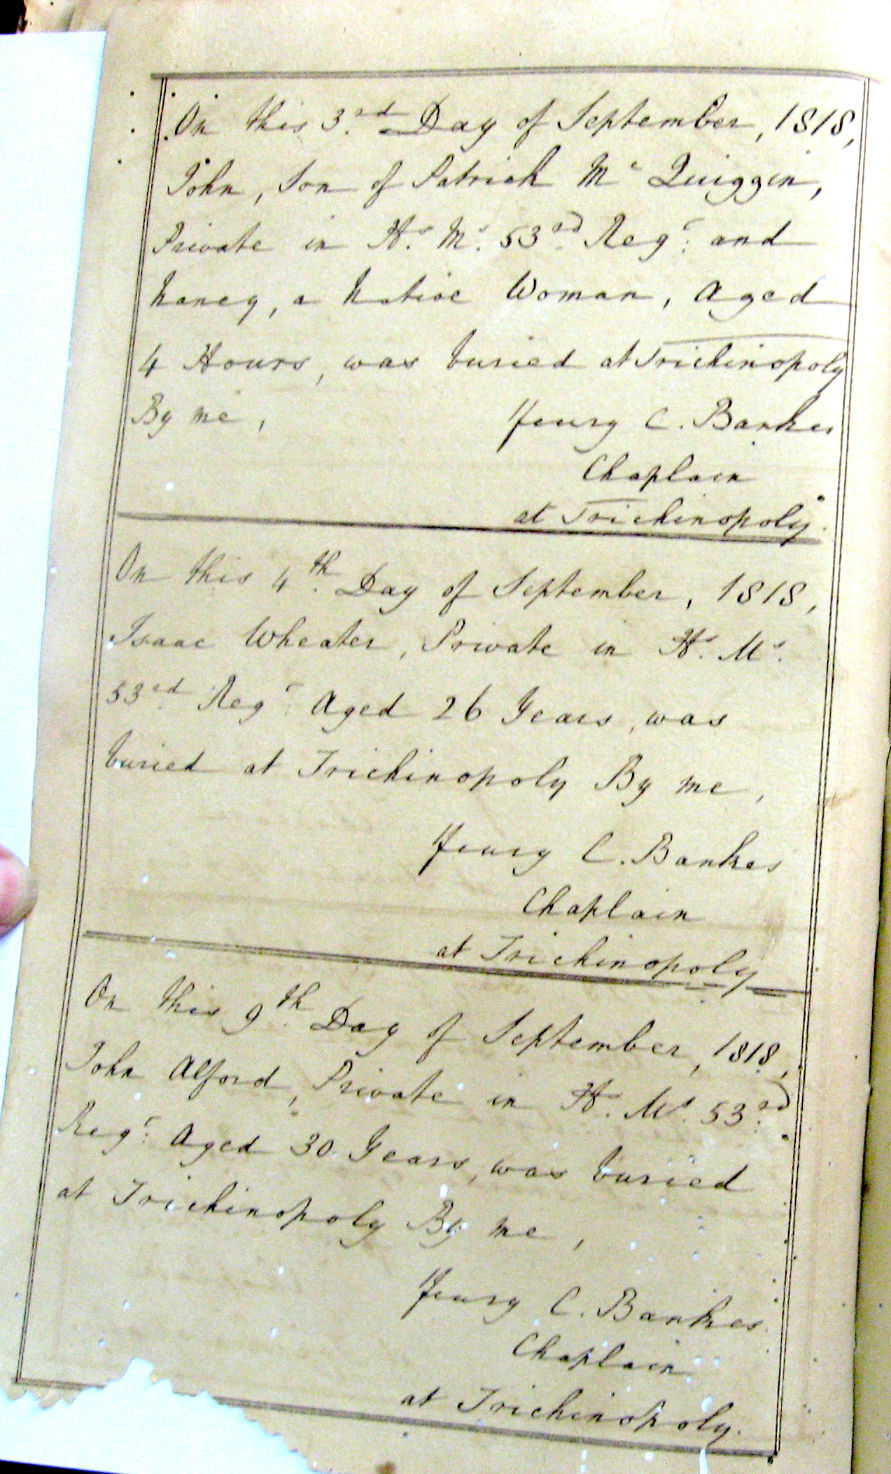 On this 3.rd Day of September, 1818,
John, Son of Patrick Mc Quiggin,
Private in H.s M.s 53rd Regt. and
Nancy, a Native Woman, Aged
4 Hours, was buried at Trichinopoly
By me,
Henry C. Bankes
Chaplain
at Trichinopoly.
On this 4th. Day of September, 1818,
Isaac Wheater, Private in H.s M.s
53rd Regt. Aged 26 Years, was
buried at Trichinopoly By me,
Henry C. Bankes
Chaplain
at Trichinopoly
On this 9th. Day of September, 1818,
John Alford, Private in H. Ms. 53rd
Regt. Aged 30 Years, was buried
at Trichinopoly By me,
Henry C. Bankes
Chaplain
at Trichinopoly.